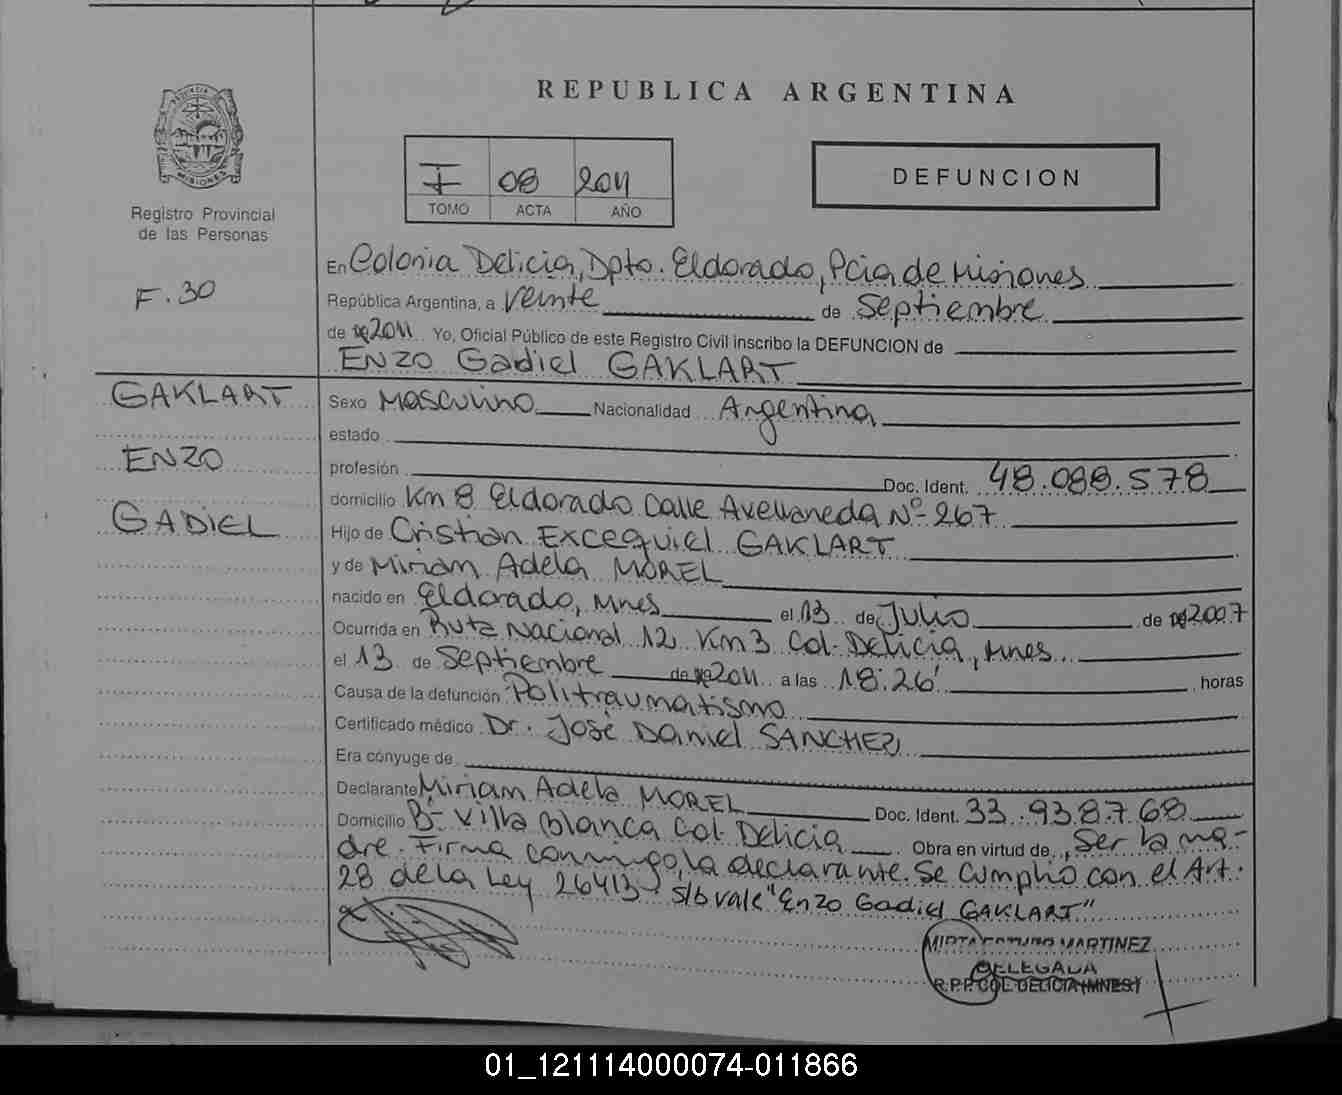 REPUBLICA ARGENTINA
PROVINCIA DE MISIONES
Registro Provincial
de las Personas
F. 30
I 08 2011
TOMO ACTA AÑO
DEFUNCION
En Colonia Delicia, Dpto. Eldorado, Pcia de Misiones
República Argentina, a Veinte de Septiembre
de 2011 Yo, Oficial Público de este Registro Civil inscribo la DEFUNCION de
ENZO Gadiel GAKLART
GAKLART
ENZO
GADIEL
Sexo Masculino Nacionalidad Argentina
estado
profesión Doc. Ident. 48.088.578
domicilio Km 8 Eldorado Calle Avellaneda Nº 267
Hijo de Cristian Excequiel GAKLART
y de Miriam Adela MOREL
nacido en Eldorado, Mnes el 13 de Julio de 2007
Ocurrida en Ruta Nacional 12 Km 3 Col. Delicia, Mnes
el 13 de Septiembre de 2011 a las 18:26' horas
Causa de la defunción Politraumatismo
Certificado médico Dr. José Daniel SANCHEZ
Era cónyuge de
Declarante Miriam Adela MOREL Doc. Ident. 33.938.768
Domicilio Bº Villa Blanca Col. Delicia Obra en virtud de Ser la ma-
dre. Firma conmigo, la declarante. Se cumplió con el Art.
28 de la Ley 26413 s/b vale "Enzo Gadiel GAKLART"
MARTINEZ
DELEGADA
R.P.P. COL. DELICIA (MNES)
01_121114000074-011866